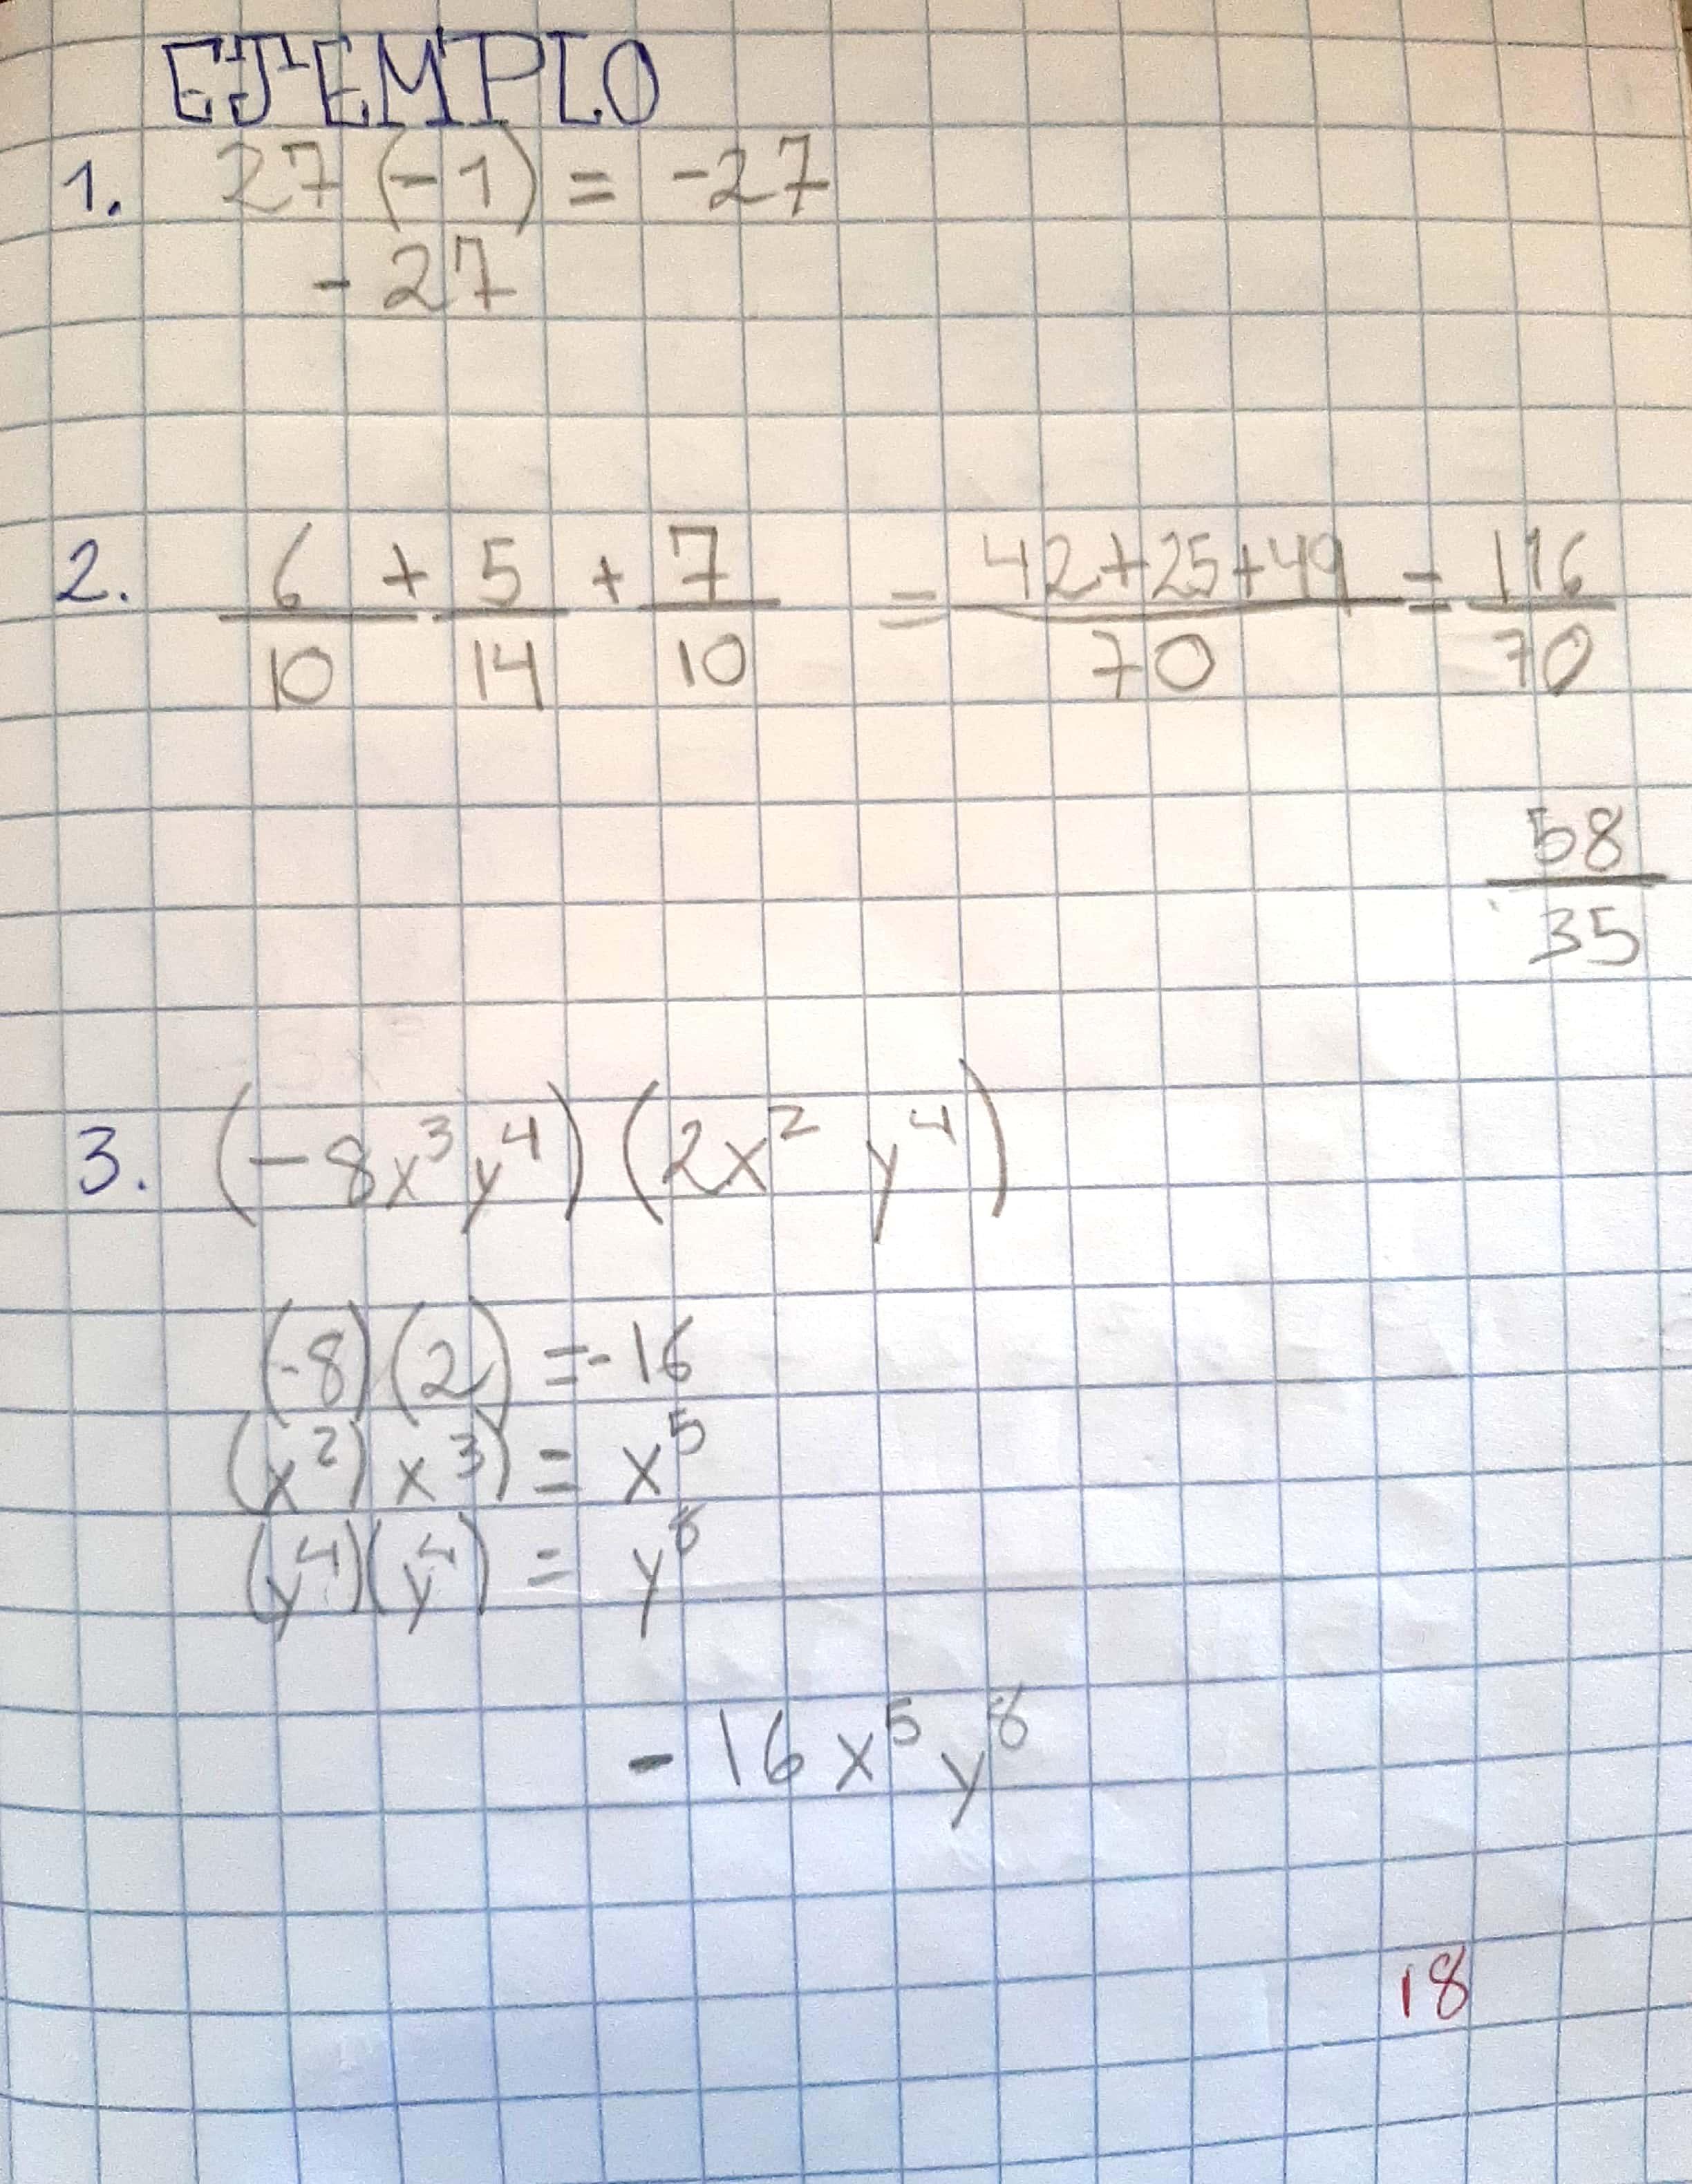 EJEMPLO
1. 27 (-1) = -27
- 27
2. 6/10 + 5/14 + 7/10 = 42+25+49/70 = 116/70
58/35
3. (-8x³y⁴) (2x² y⁴)
(-8)(2) = -16
(x²) x³) = x⁵
(y⁴)(y⁴) = y⁸
- 16 x⁵ y⁸
18